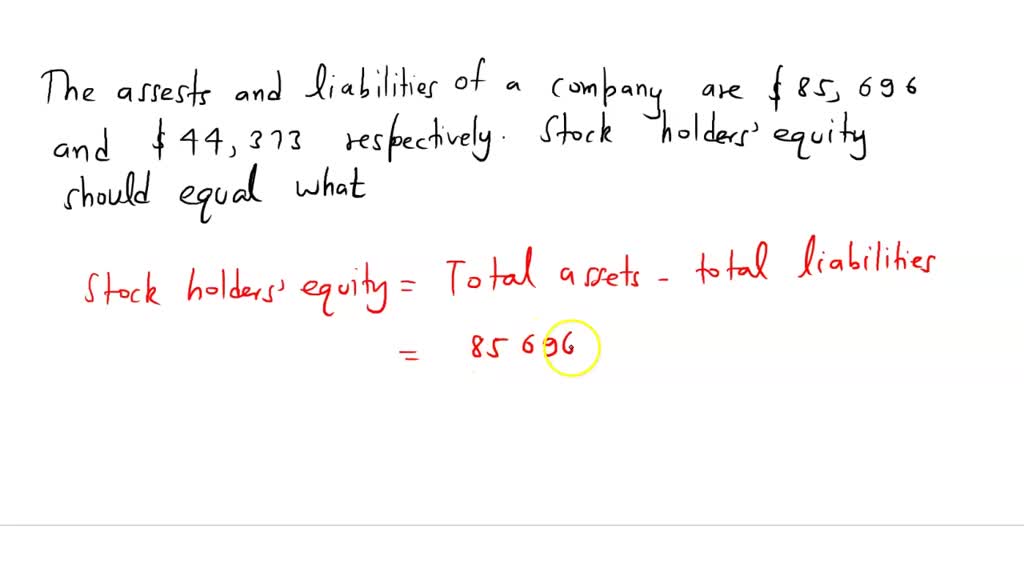 The assests and liabilities of a company are $ 85, 696
and $ 44, 373 respectively. Stock holders' equity
should equal what
Stock holders' equity = Total assets - total liabilities
= 85 696